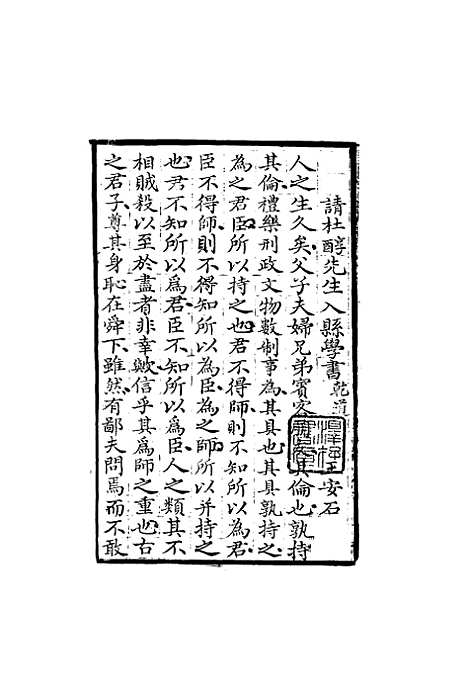 請杜醇先生入縣學書乾道
王安石
人之生久矣父子夫婦兄弟賓客其倫也孰持
其倫禮樂刑政文物數制事為其具也其具孰持之
為之君臣所以持之也君不得師則不知所以為君
臣不得師則不知所以為臣為之師所以并持之
也君不知所以為君臣不知所以為臣人之類其不
相賊殺以至於盡者非幸歟信乎其爲師之重也古
之君子尊其身恥在舜下雖然有鄙夫問焉而不敢